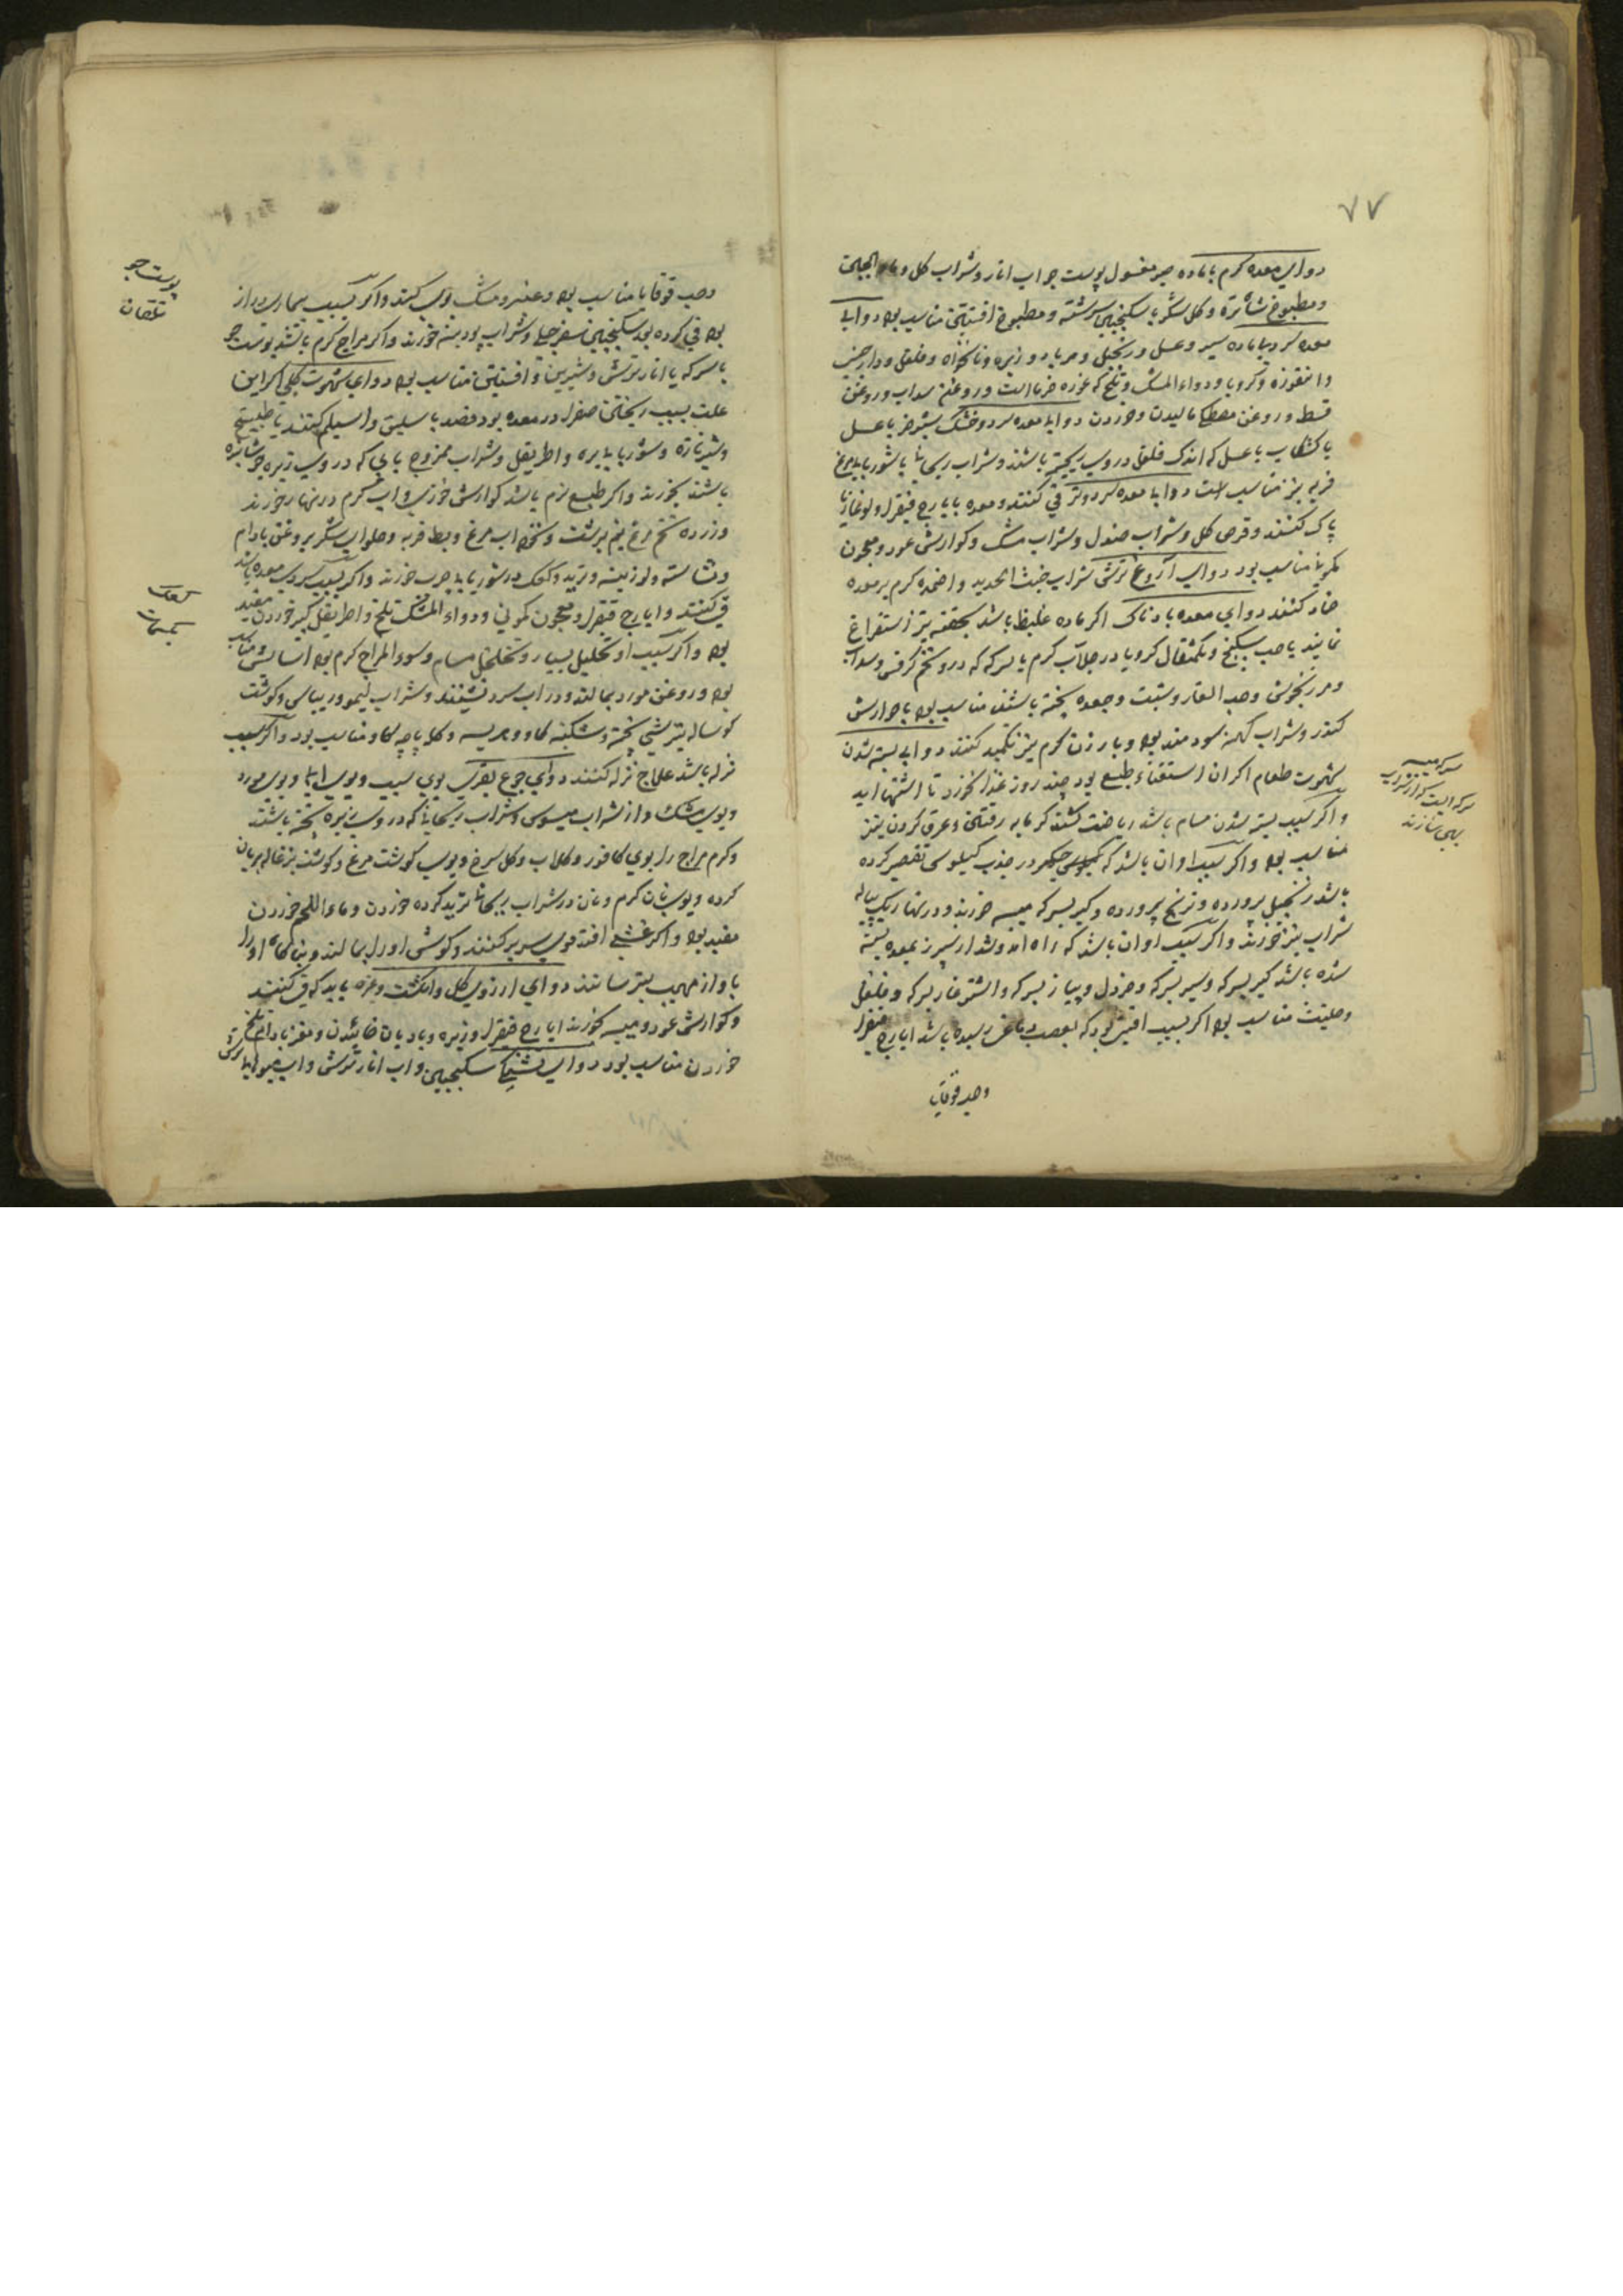 ۷۷
دوای معده گرم با ماده صبر مغسول پوست جو اب انار و شراب گل و ماء الجبن
و مطبوخ شاتره و گل شکر با سکنجبین سرشته و مطبوخ افسنتین مناسب بود دوای
معده سرد با ماده سیر و عسل و زنجبیل و مربا و زیره و نانخواه و فلفل و دارچینی
وانقوزه و کرویا و دواء المسک و تلخ که غوره خرما است و روغن سداب و روغن
قسط و روغن مصطکی مالیدن و خوردن دوای معده سرد و خشک شیر خر با عسل
یا کشکاب با عسل که اندک فلفل در وی ریخته باشند و شراب ریحانی با شوربای مرغ
فربه نیز مناسب است دوای معده سرد و تر قی کنند و معده بایارج فیقرا و لوغازیا
پاک کنند و قرص گل و شراب صندل و شراب مشک و کوارش عود و معجون
کمونی مناسب بود دوای آروغ ترش شراب خبث الحدید و اضمده گرم بر معده
ضماد کنند دوای معده بادناک اگر ماده غلیظ باشد بحقنه تیز استفراغ
نمایند یا حب سکبینج و یکمثقال کرویا در جلاب گرم یا سرکه که درو تخم کرفس و سداب
و مرزنجوش و حب الغار و شبت و جعده پخته باشند مناسب بود با جوارش
کندر و شراب کهنه سودمند بود و با ارزن گرم نیز تکمید کنند دوای بسته شدن
شهوت طعام اگر ان استغناء طبع بود چند روز غذا نخورد تا اشتها اید
و اگر سبب بسته شدن مسام باشد ریاضت کنند گرمابه رفتن و عرق کردن نیز
مناسب بود و اگر سبب او ان باشد که جگر در جذب کیلوس تقصیر کرده
باشد زنجبیل پرورده و ترنج پرورده و کبر بسرکه میبه خورند و در نهار یک پیاله
شراب نیز خورند و اگر سبب او ان باشد که راه امد و شد از سپرز بمعده بسته
شده باشد کبر بسرکه و سیر بسرکه و خردل و پیاز بسرکه و اشترغاز بسرکه و فلفل
و حلتیت مناسب بود اگر بسبب افتی بود که بعصب دماغی رسیده باشد ایارج فیقرا
وحب قوقایا
سرکه میبه
سرکه ایست که از شراب
بهی سازند
وحب قوقایا مناسب بود و عنبر و مشک بوی کنند و اگر بسبب بیماری دراز
بود قی کرده بود سکنجبین سفرجلی و شراب پودینه خورند و اگر مزاج گرم باشد پوست جو
با سرکه یا انار ترش و شیرین و افسنتین مناسب بود دوای شهوت کلبی اگر این
علت بسبب ریختن صفرا در معده بود فصد باسلیق و اسیلم کنند یا طبیخی
و شیر تازه و شوربای بره و اطریفل و شراب ممزوج بابی که در وی زیره جوشانیده
باشند بخورند و اگر طبع نرم باشد کوارش خوزی و اب گرم در نهار خورند
و زرده تخم مرغ نیم برشت و نخود اب مرغ و بط فربه و حلوای شکر بروغن بادام
و نشاسته و لوزینه و ترید و کعک در شوربای چرب خورند و اگر بسبب سردی معده باشد
قی کنند و ایارج فیقرا و معجون کمونی و دواء المسک تلخ و اطریفل کبیر خوردن مفید
بود و اگر سبب او تحلیل بسیار و تخلخل مسام و سوء المزاج گرم بود اسایش مناسب
بود و روغن مورد بمالند و در اب سرد نشینند و شراب لیمو و ریباس و گوشت
گوساله بترشی پخته و شکنبه گاو و هریسه و کله پاچه گاو مناسب بود و اگر بسبب
نزله باشد علاج نزله کنند دوای جوع بقری بوی سیب و بوی ابی و بوی مورد
و بوی مشک و از شراب میسوس و شراب ریحانی که در وی زیره پخته باشند
و گرم مزاج را بوی کافور و گلاب و گل سرخ و بوی گوشت مرغ و گوشت بزغاله بریان
کرده و بوی نان گرم و نان در شراب ریحانی ترید کرده خوردن و ماء اللحم خوردن
مفید بود و اگر غشی افتد موی سر بر کنند و گوش او را بمالند و بناگاه او را
باواز مهیب بترسانند دوای ارزوی گل و انگشت و غیره باید که قی کنند
و کوارش عود و میبه خورند ایارج فیقرا و زیره و بادیان خائیدن و مغز بادام تلخ
خوردن مناسب بود دوای تشنگی سکنجبین و اب انار ترش و اب میوهای ترش
پوست جو
تلقان
کعک
کیمات